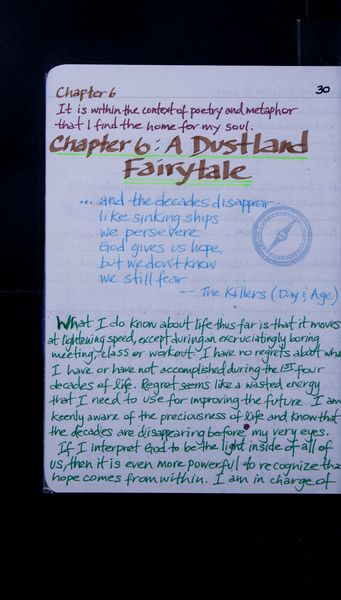 Chapter 6
30
It is within the context of poetry and metaphor
that I find the home for my soul.
Chapter 6: A Dustland
Fairytale
... and the decades disappear
like sinking ships
we persevere
God gives us hope,
but we don't know
we still fear
-- The Killers (Day & Age)
What I do know about life thus far is that it moves
at lightening speed, except during an excruciatingly boring
meeting, class or workout. I have no regrets about wha
I have or have not accomplished during the 1st four
decades of life. Regret seems like a wasted energy
that I need to use for improving the future. I am
keenly aware of the preciousness of life and know that
the decades are disappearing before my very eyes.
If I interpret God to be the light inside of all of
us, then it is even more powerful to recognize tha
hope comes from within. I am in charge of